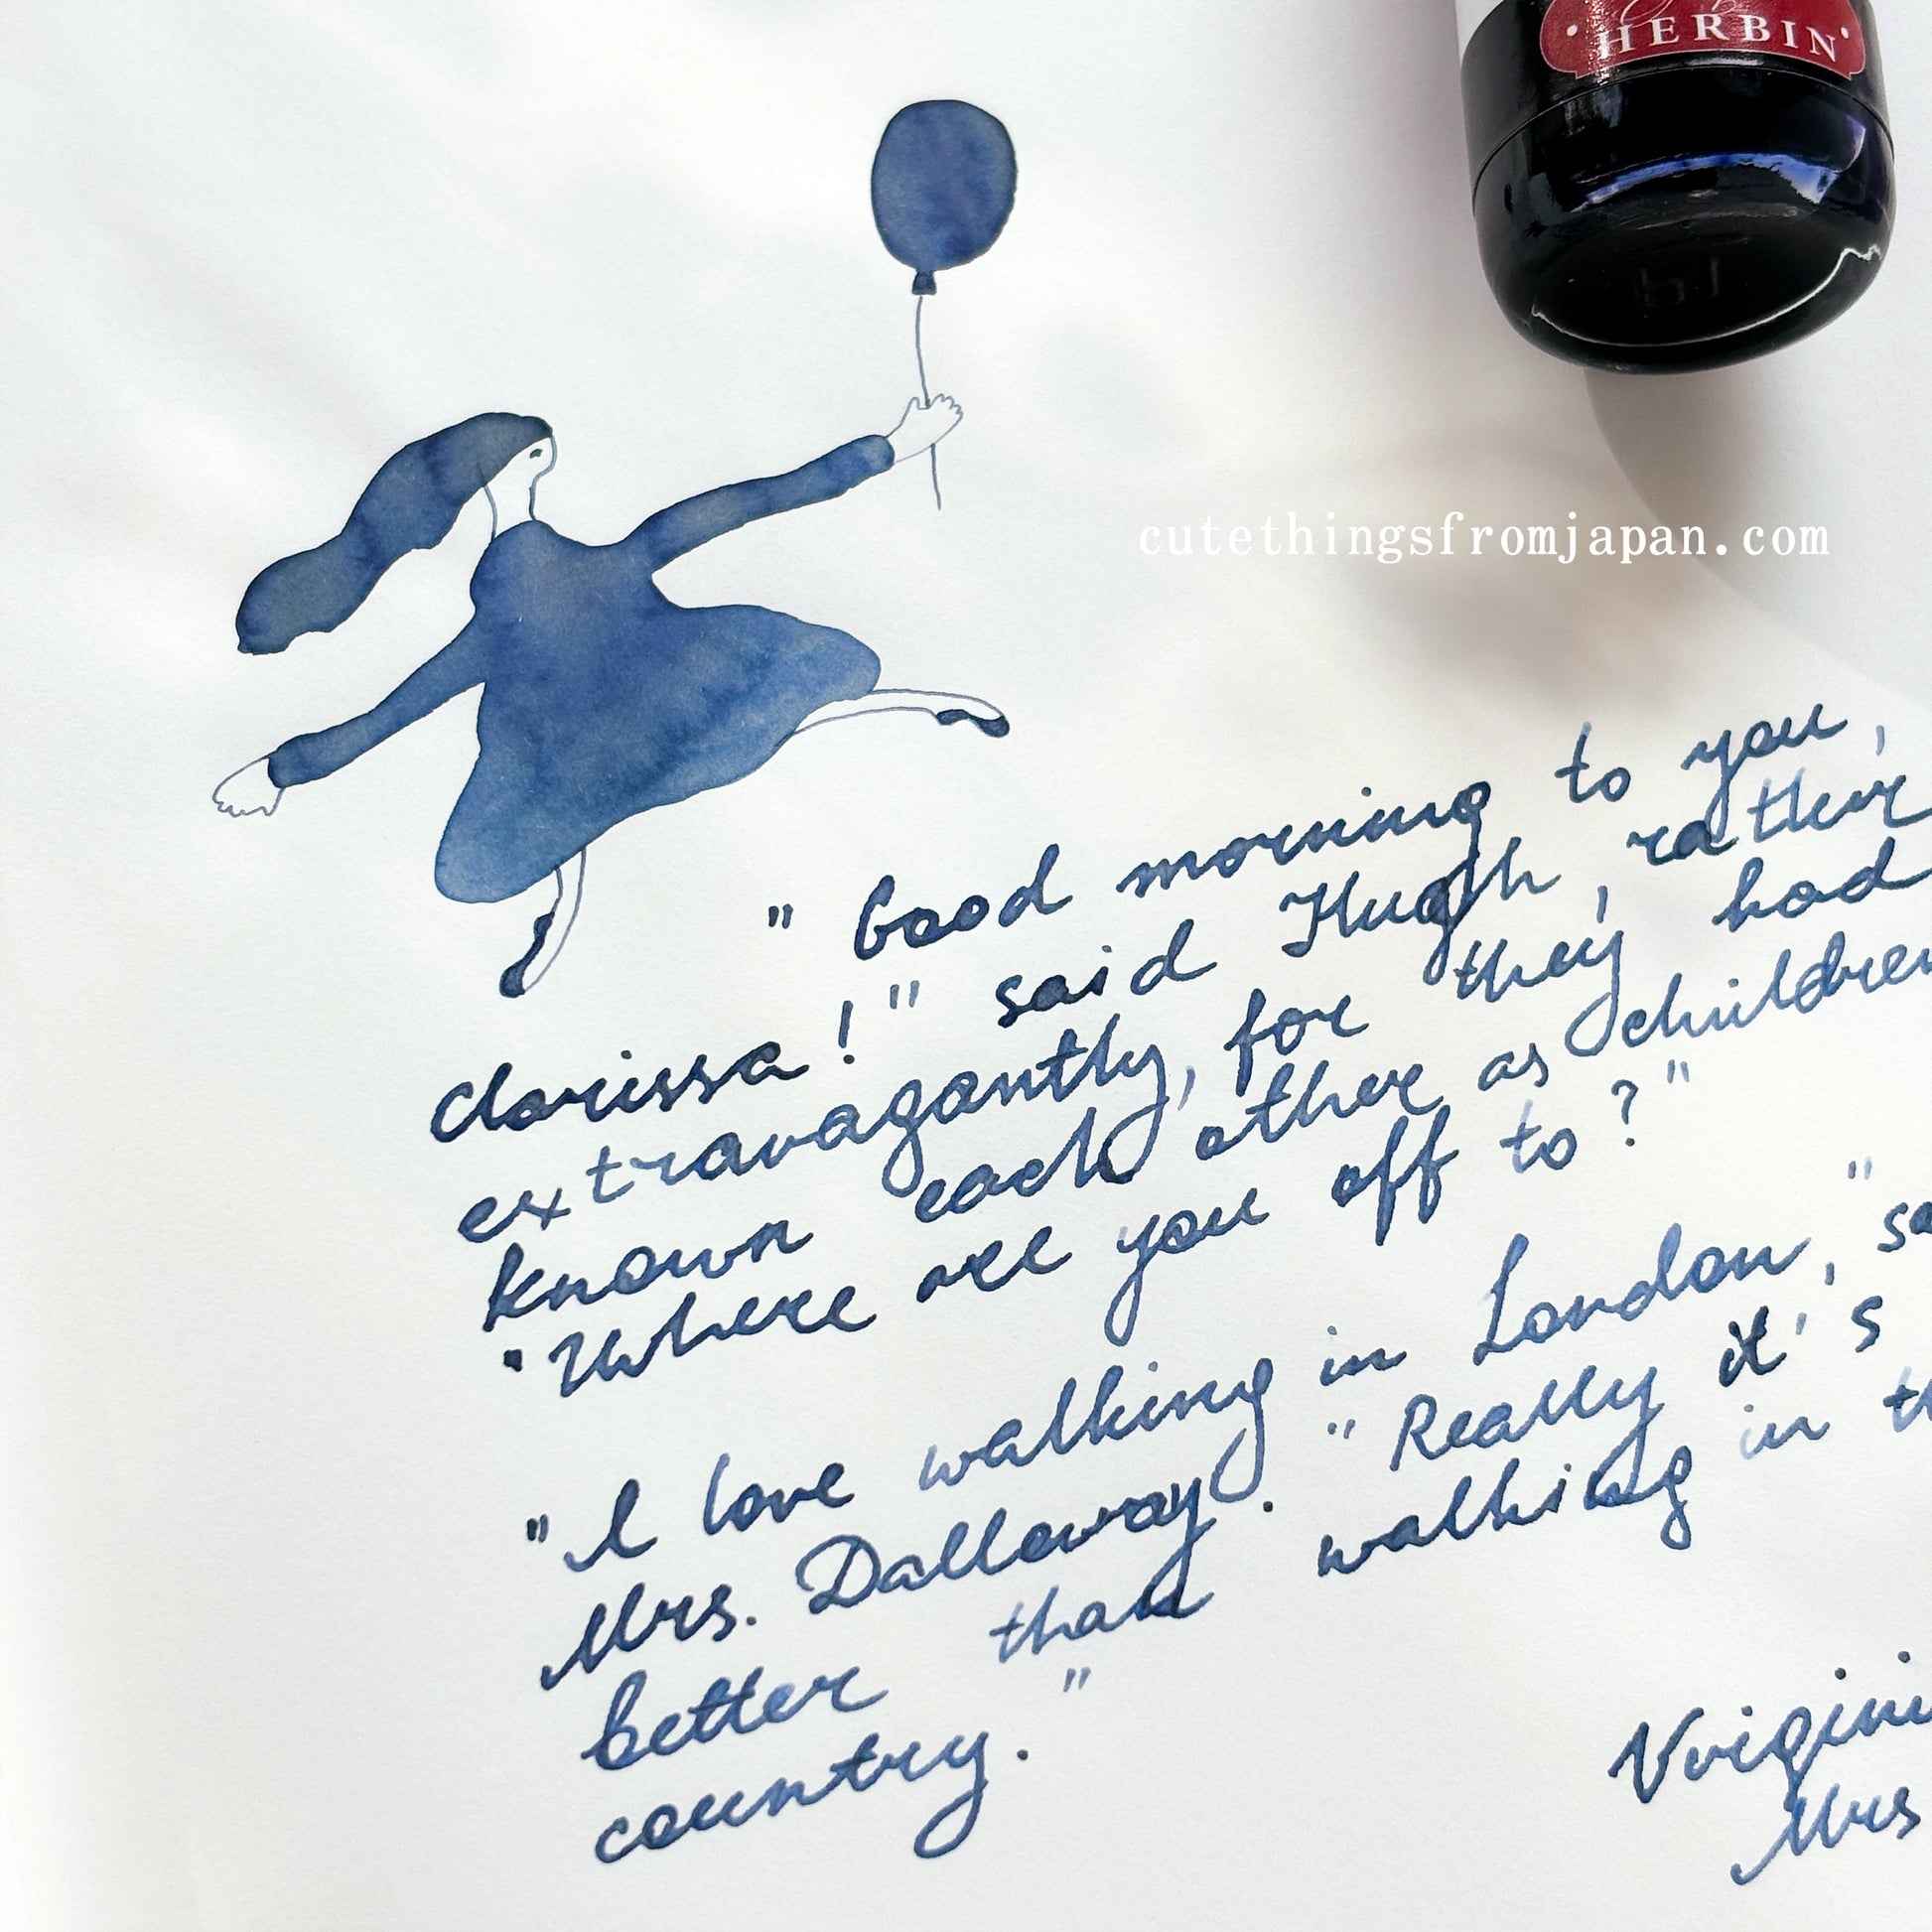 HERBIN
cutethingsfromjapan.com
" Good morning to you,
Clarissa!" said Hugh, rather
extravagantly, for they had
known each other as children
"Where are you off to?"
"I love walking in London," sa
Mrs. Dalloway. "Really it's
better than walking in th
country."
Virgini
Mrs